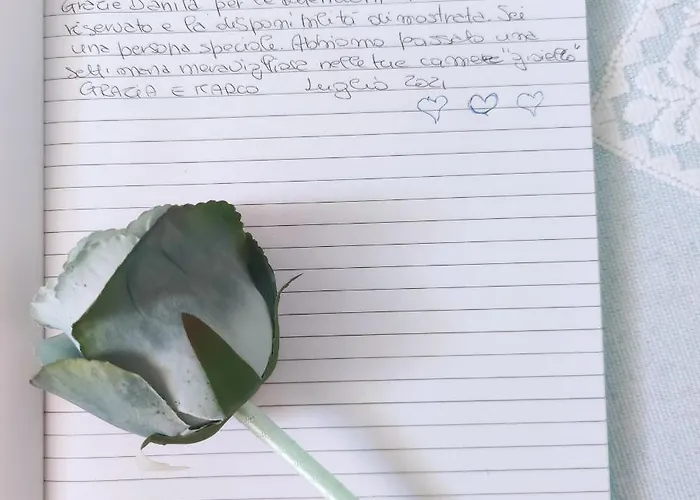 Grazie Danila per le attenzioni
riservato e la disponibilità dimostrata. Sei
una persona speciale. Abbiamo passato una
settimana meravigliosa nelle tue camere "gioiello"
GRAZIA E MARCO Luglio 2021